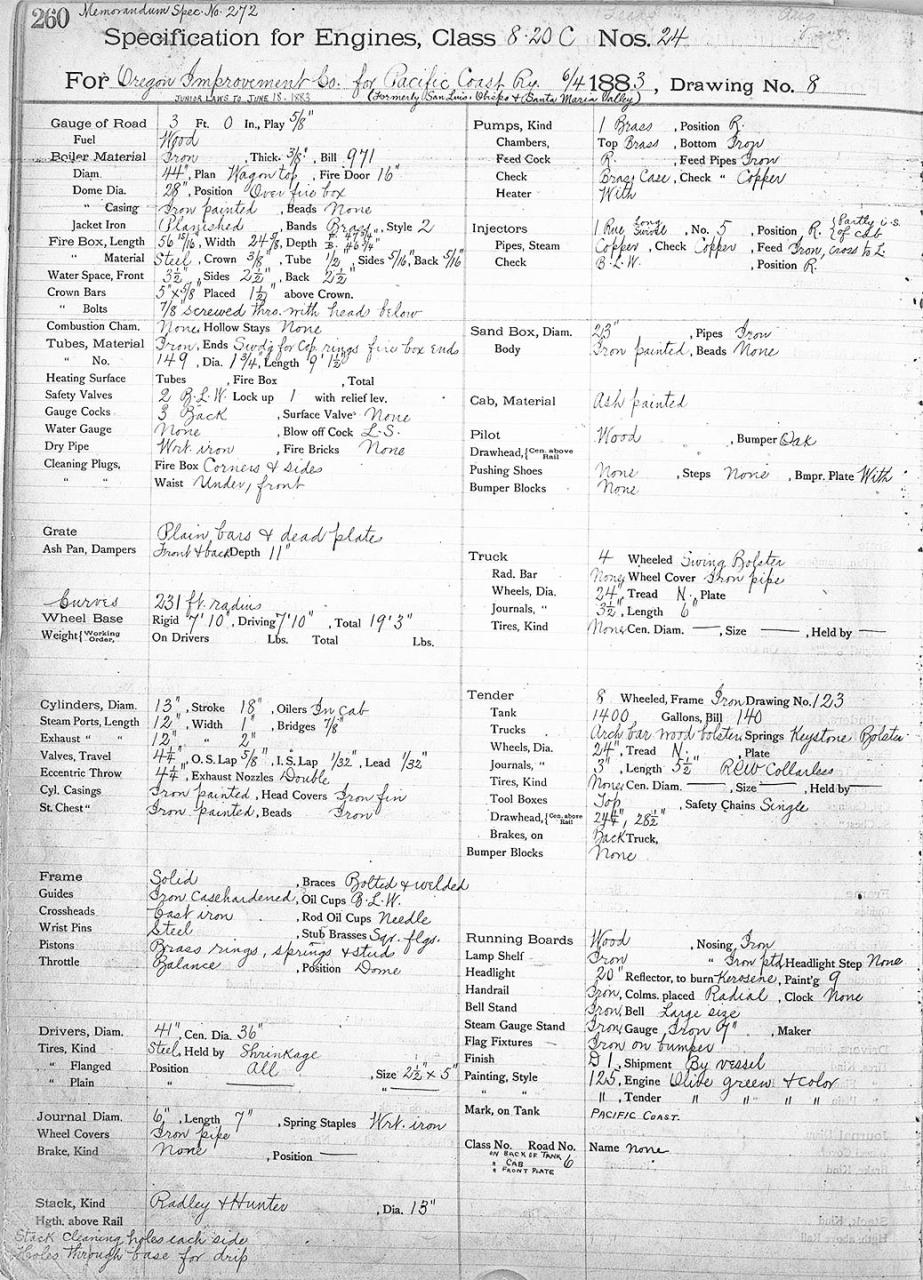 260 Memorandum Spec. No. 272
Specification for Engines, Class 8-20 C Nos. 24
For Oregon Improvement Co. for Pacific Coast Ry. 6/4 1883, Drawing No. 8
JUNIOR LAWS TO JUNE 18. 1883 (Formerly San Luis Obispo & Santa Maria Valley)
Gauge of Road 3 Ft. 0 In., Play 5/8"
Fuel Wood
Boiler Material Iron, Thick. 3/8", Bill 971
Diam. 44", Plan Wagon top, Fire Door 16"
Dome Dia. 28", Position Over fire box
" Casing Iron painted, Beads None
Jacket Iron Planished, Bands Brass, Style 2
Fire Box, Length 56 15/16, Width 24 5/8, Depth
" Material Steel, Crown 3/8", Tube 1/2, Sides 5/16", Back 5/16
Water Space, Front 3½", Sides 2½", Back 2½"
Crown Bars 5" x 5/8" Placed 1½" above Crown.
" Bolts 7/8 screwed thro. with heads below
Combustion Cham. None, Hollow Stays None
Tubes, Material Iron, Ends Swd'g for Cop. rings fire box ends
" No. 149, Dia. 1¾", Length 9' 1½"
Heating Surface Tubes , Fire Box , Total
Safety Valves 2 B.L.W. Lock up 1 with relief lev.
Gauge Cocks 3 Back , Surface Valve None
Water Gauge None , Blow off Cock L.S.
Dry Pipe Wrt. iron , Fire Bricks None
Cleaning Plugs, Fire Box Corners & sides
" " Waist Under, front
Grate Plain bars & dead plates
Ash Pan, Dampers Front & back Depth 11"
Curves 231 ft. radius
Wheel Base Rigid 7' 10", Driving 7' 10", Total 19' 3"
Weight { Working Order, On Drivers Lbs. Total Lbs.
Cylinders, Diam. 13", Stroke 18", Oilers In cab
Steam Ports, Length 12", Width 1", Bridges 7/8"
Exhaust " " 12" " 2"
Valves, Travel 4¼", O. S. Lap 5/8", I. S. Lap 1/32", Lead 1/32"
Eccentric Throw 4¼", Exhaust Nozzles Double
Cyl. Casings Iron painted, Head Covers Iron fin
St. Chest " Iron painted, Beads Iron
Frame Solid , Braces Bolted & welded
Guides Iron Casehardened, Oil Cups B.L.W.
Crossheads Cast iron , Rod Oil Cups Needle
Wrist Pins Steel , Stub Brasses Sqr. flgs.
Pistons Brass rings, springs & studs
Throttle Balance , Position Dome
Drivers, Diam. 41", Cen. Dia. 36"
Tires, Kind Steel, Held by Shrinkage
" Flanged Position All , Size 2½" x 5"
" Plain " "
Journal Diam. 6", Length 7" , Spring Staples Wrt. iron
Wheel Covers Iron pipe
Brake, Kind None , Position —
Stack, Kind Radley & Hunter , Dia. 13"
Hgth. above Rail
Stack Cleaning holes each side
Holes through base for drip
Pumps, Kind 1 Brass , Position R.
Chambers, Top Brass , Bottom Iron
Feed Cock R. , Feed Pipes Iron
Check Brass Case, Check " Copper
Heater With
Injectors 1 Rue Long Swivle , No. 5 , Position R. { Partly i.s. of cab
Pipes, Steam Copper, Check Copper, Feed Iron, cross to L.
Check B.L.W. , Position R.
Sand Box, Diam. 23" , Pipes Iron
Body Iron painted, Beads None
Cab, Material Ash painted
Pilot Wood , Bumper Oak
Drawhead, { Cen. above Rail
Pushing Shoes None , Steps None , Bmpr. Plate With
Bumper Blocks None
Truck 4 Wheeled Swing Bolster
Rad. Bar None, Wheel Cover Iron pipe
Wheels, Dia. 24", Tread N. , Plate
Journals, " 3½", Length 6"
Tires, Kind None, Cen. Diam. —, Size —, Held by —
Tender 8 Wheeled, Frame Iron Drawing No. 123
Tank 1400 Gallons, Bill 140
Trucks Arch bar wood bolster, Springs Keystone Bolster
Wheels, Dia. 24", Tread N. , Plate
Journals, " 3", Length 5½" Collarless
Tires, Kind None, Cen. Diam. —, Size —, Held by —
Tool Boxes Top , Safety Chains Single
Drawhead, { Cen. above Rail 24¼", 28½"
Brakes, on Back Truck,
Bumper Blocks None
Running Boards Wood , Nosing Iron
Lamp Shelf Iron " Iron ptd, Headlight Step None
Headlight 20" Reflector, to burn Kerosene, Paint'g 9
Handrail Iron, Colms. placed Radial , Clock None
Bell Stand Iron, Bell Large size
Steam Gauge Stand Iron, Gauge Iron 9" , Maker
Flag Fixtures Iron on bumper
Finish D 1, Shipment By vessel
Painting, Style 125, Engine Olive green & color
" " " , Tender " " " "
Mark, on Tank PACIFIC COAST.
Class No. Road No. 6 Name None
ON BACK OF TANK
" CAB
" FRONT PLATE